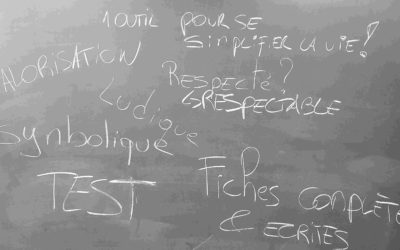 1 OUTIL POUR SE
SIMPLIFIER LA VIE !
VALORISATION
RESPECTÉ ?
↳ RESPECTABLE
Ludique
Symbolique
TEST
Fiches COMPLÈTE
& ECRITES